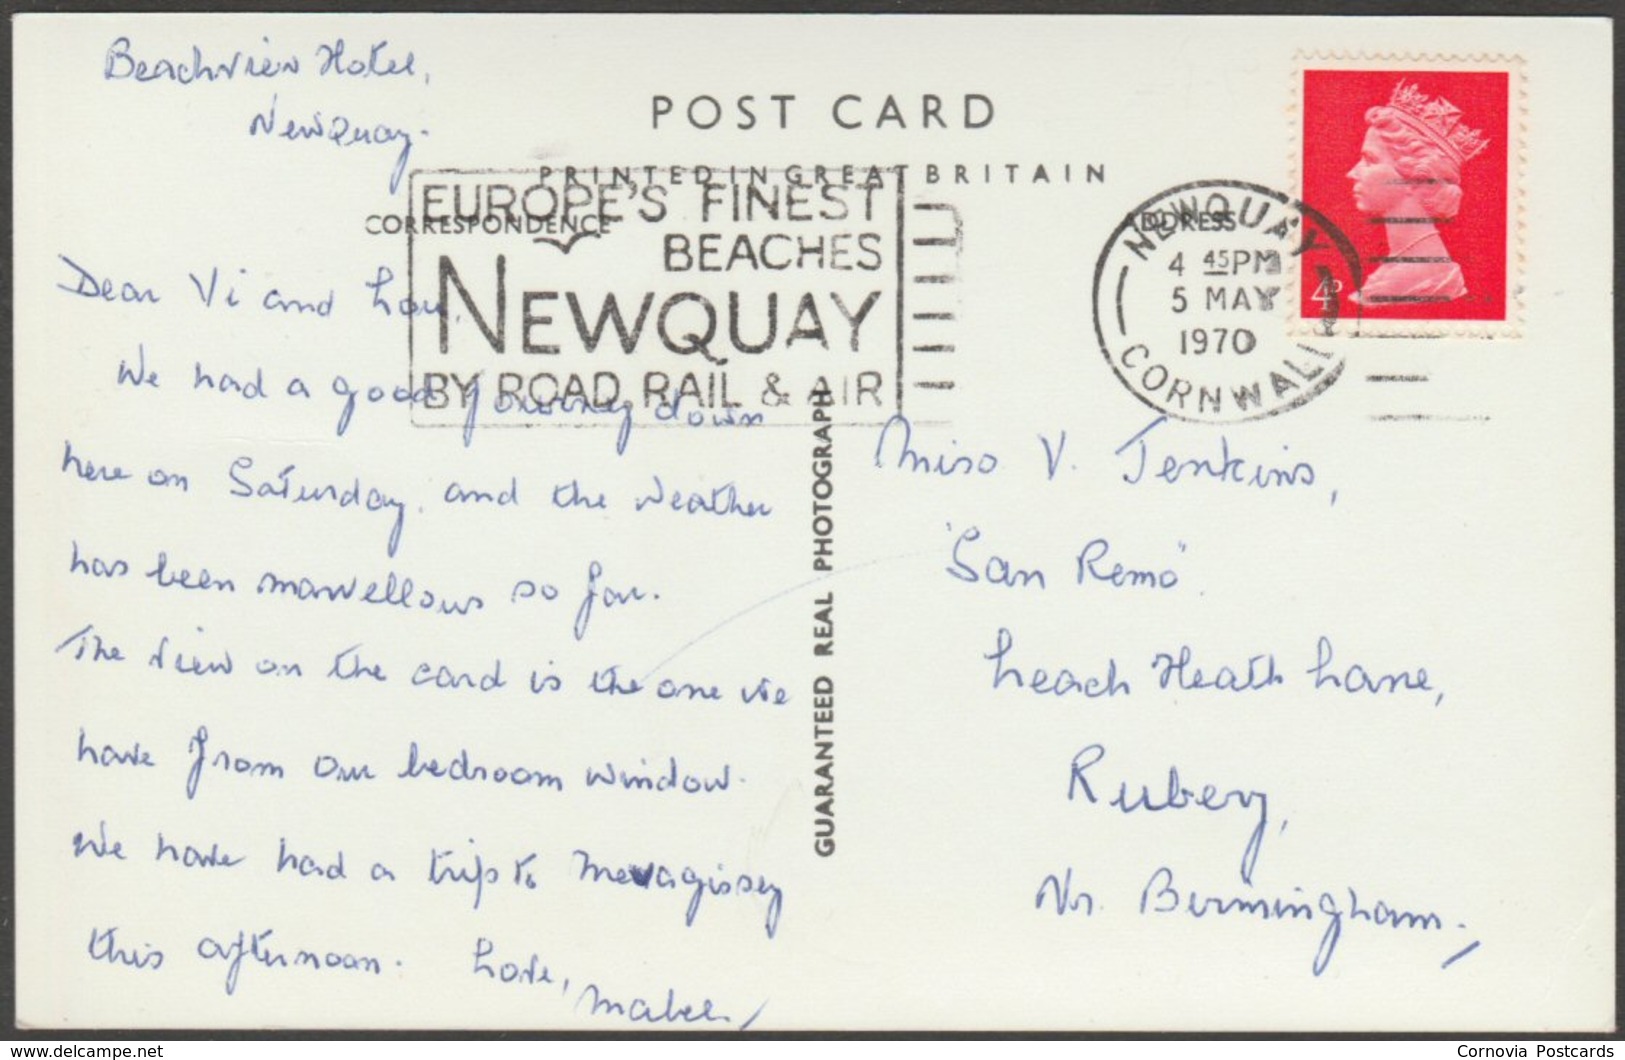 Beachview Hotel,
Newquay.
POST CARD
PRINTED IN GREAT BRITAIN
CORRESPONDENCE
ADDRESS
EUROPE'S FINEST
BEACHES
NEWQUAY
BY ROAD, RAIL & AIR
NEWQUAY
4 45PM
5 MAY
1970
CORNWALL
4D
Dear Vi and Lou,
We had a good journey down
here on Saturday, and the weather
has been marvellous so far.
The view on the card is the one we
have from our bedroom window.
We have had a trip to Mevagissey
this afternoon. Love,
Mabel.
GUARANTEED REAL PHOTOGRAPH
Miss V. Jenkins,
"San Remo"
Leach Heath Lane,
Rubery,
Nr. Birmingham.
Cornovia Postcards
delcampe.net